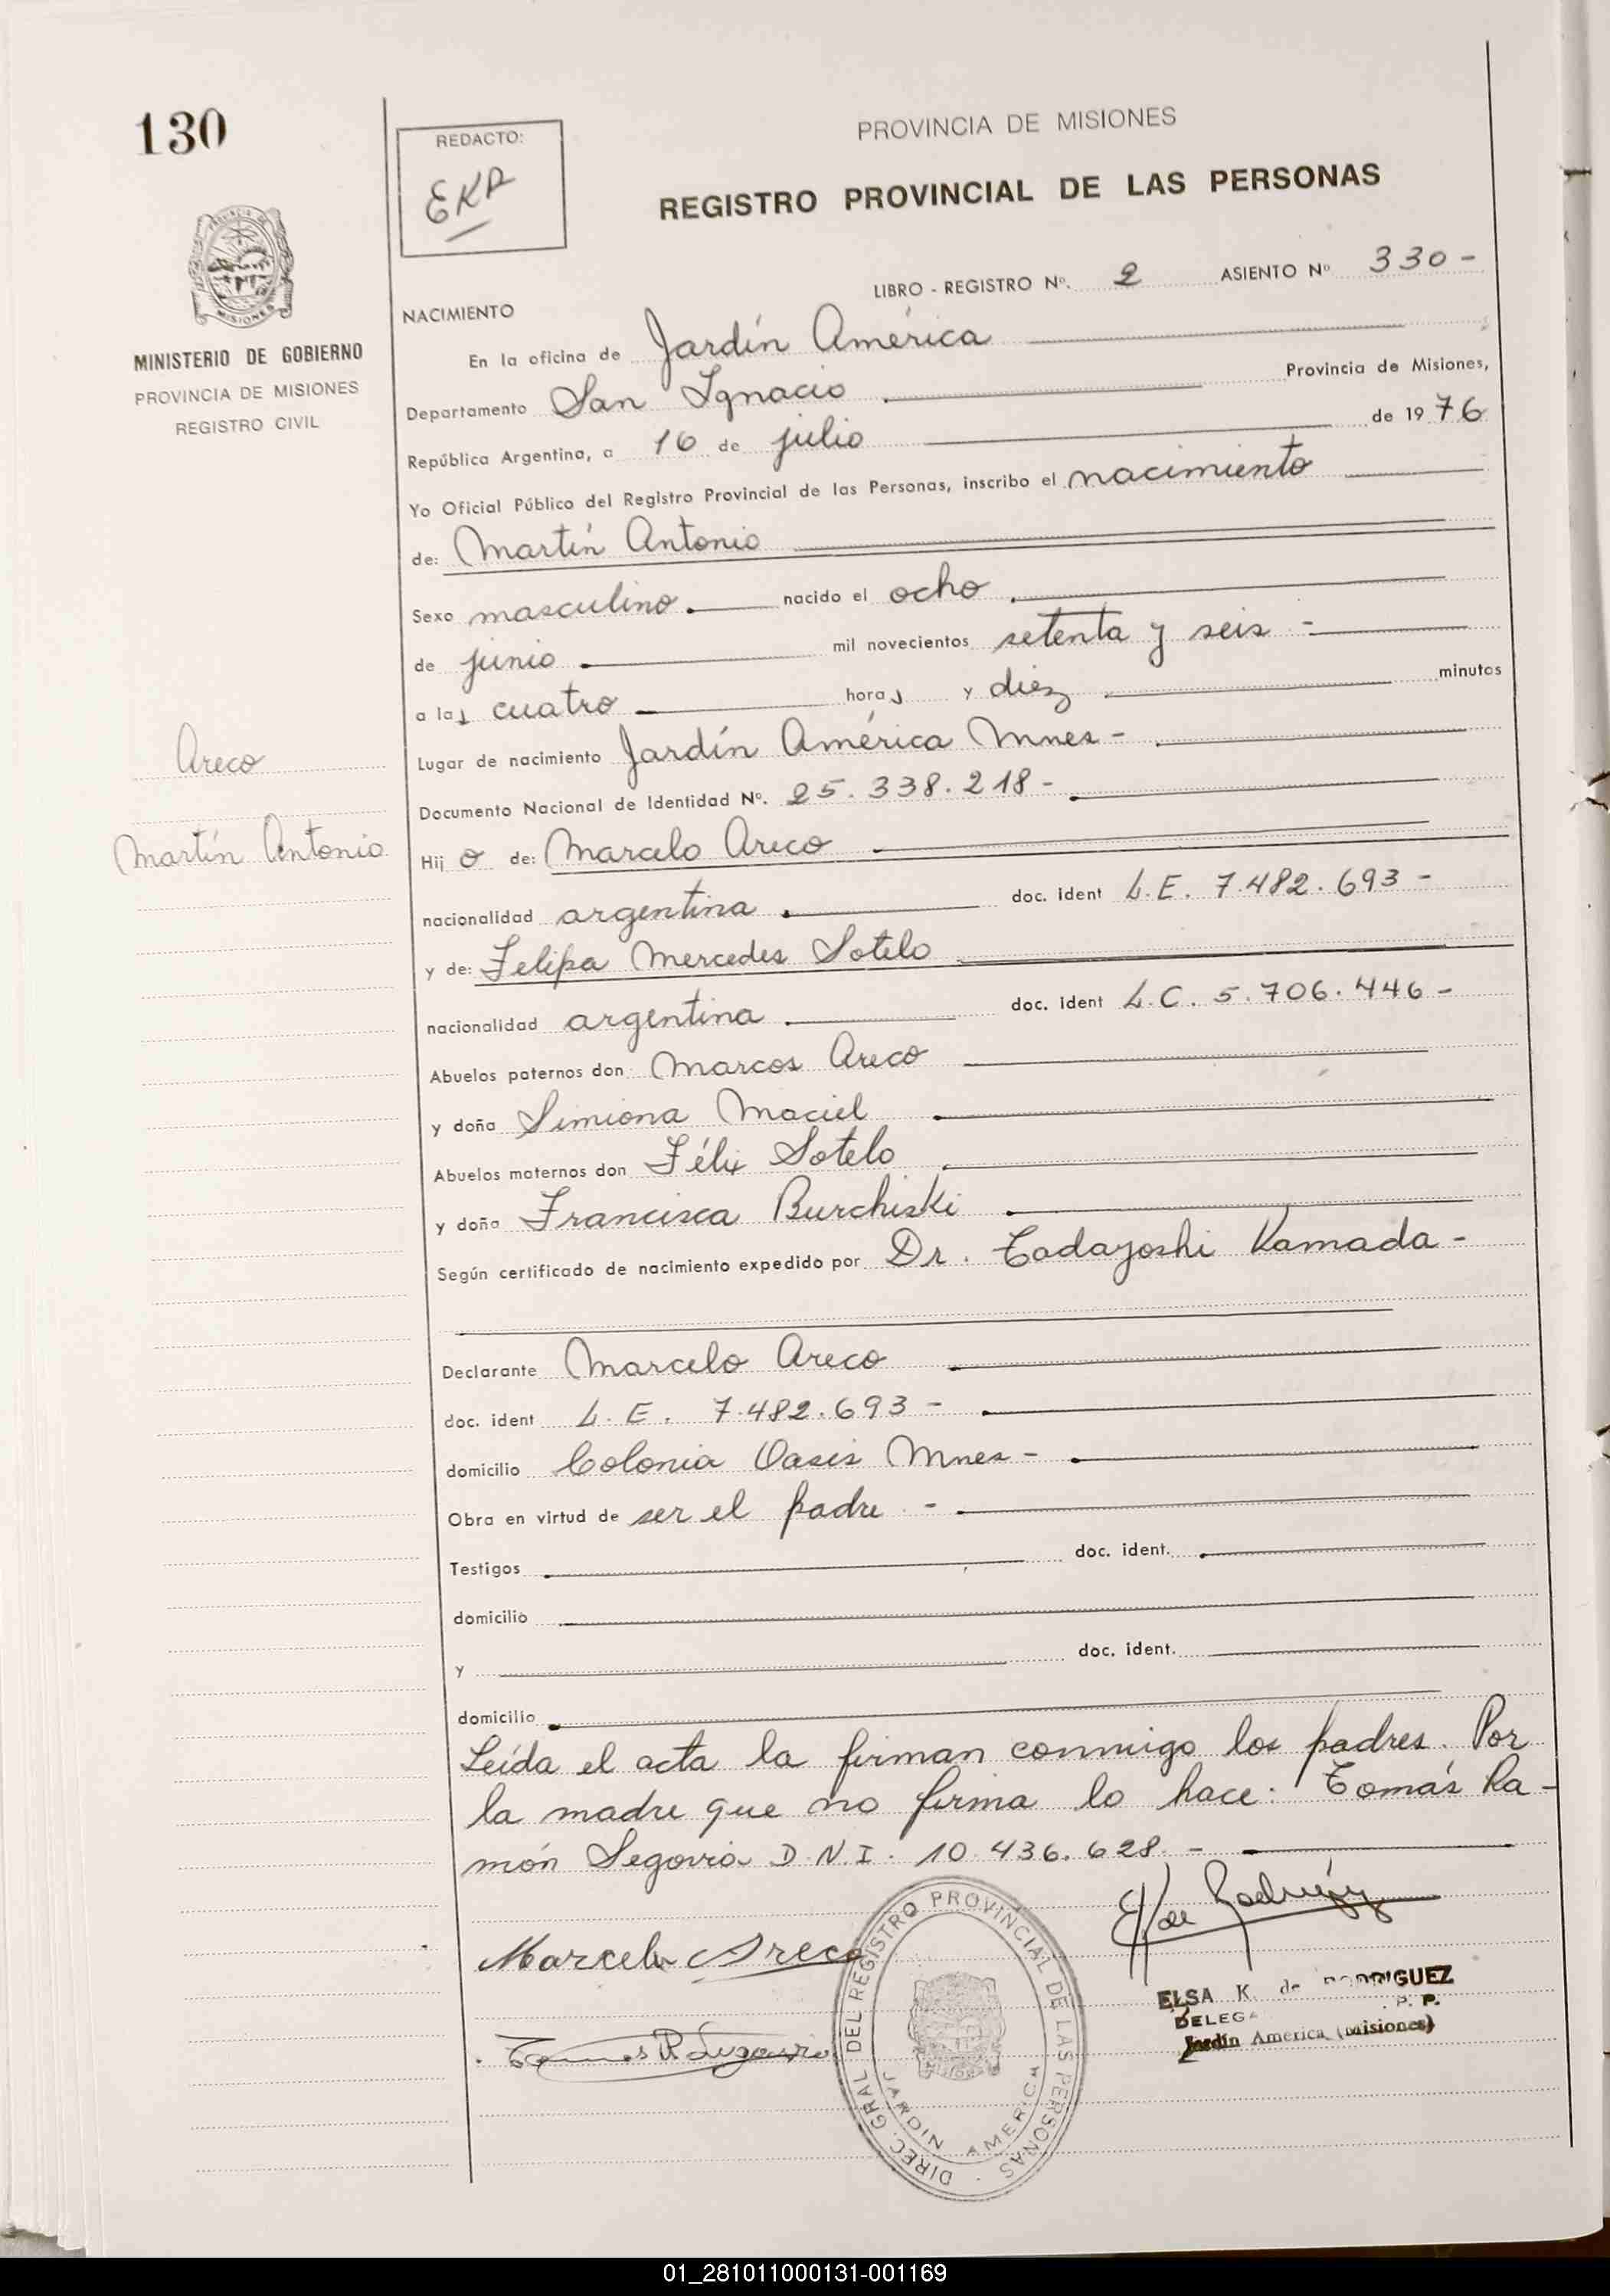 130
REDACTO:
EKR
PROVINCIA DE MISIONES
REGISTRO PROVINCIAL DE LAS PERSONAS
MISIONES
MINISTERIO DE GOBIERNO
PROVINCIA DE MISIONES
REGISTRO CIVIL
LIBRO - REGISTRO Nº. 2 ASIENTO Nº 330-
NACIMIENTO
En la oficina de Jardín América
Departamento San Ignacio Provincia de Misiones,
República Argentina, a 16 de julio de 1976
Yo Oficial Público del Registro Provincial de las Personas, inscribo el nacimiento
de: Martín Antonio
Sexo masculino. nacido el ocho
de junio mil novecientos setenta y seis -
a las cuatro horas y diez minutos
Areco
Lugar de nacimiento Jardín América Mnes -
Documento Nacional de Identidad Nº. 25.338.218-
Martín Antonio
Hijo de: Marcelo Areco
nacionalidad argentina. doc. ident L.E. 7.482.693 -
y de: Felipa Mercedes Sotelo
nacionalidad argentina doc. ident L.C. 5.706.446 -
Abuelos paternos don Marcos Areco
y doña Simiona Maciel
Abuelos maternos don Félix Sotelo
y doña Francisca Burchiski
Según certificado de nacimiento expedido por Dr. Tadayoshi Kamada -
Declarante Marcelo Areco
doc. ident L.E. 7.482.693 -
domicilio Colonia Oasis Mnes -
Obra en virtud de ser el padre -
Testigos doc. ident.
domicilio
y doc. ident.
domicilio
Leída el acta la firman conmigo los padres. Por
la madre que no firma lo hace: Tomás Ra-
món Segovia D.N.I. 10.436.628. -
Marcelo Areco
E K de Rodríguez
Tomas R. Segovia
DIREC. GRAL DEL REGISTRO PROVINCIAL DE LAS PERSONAS
JARDIN AMERICA
ELSA K. de RODRIGUEZ
DELEGA P. P.
Jardín América (Misiones)
01_281011000131-001169